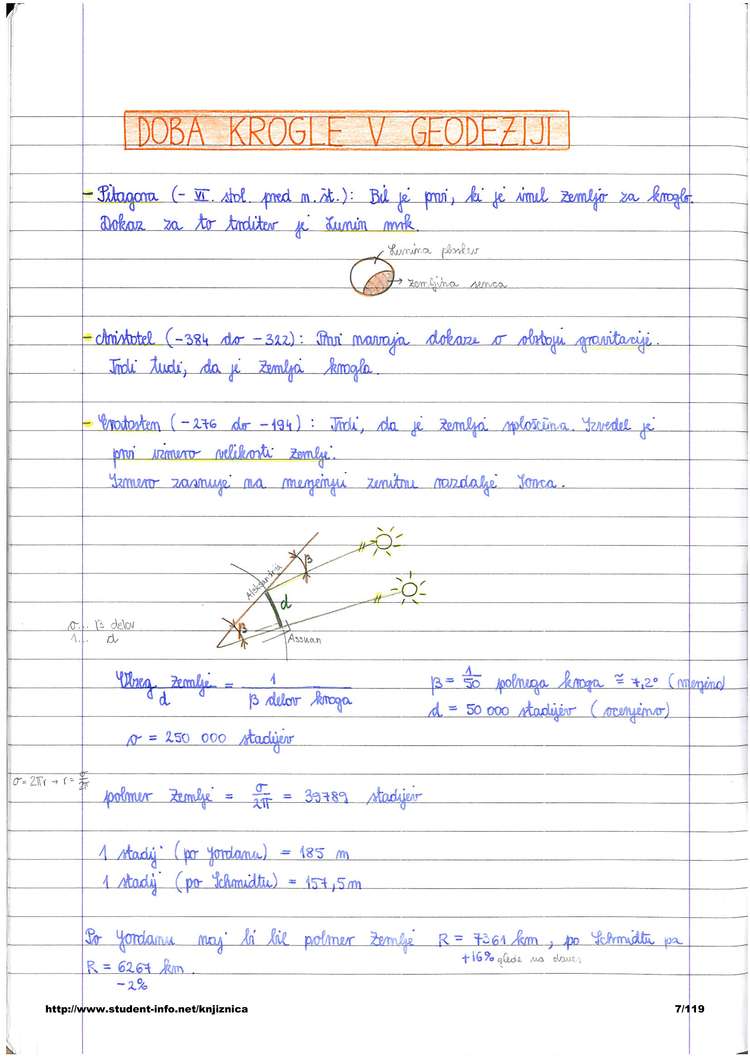 DOBA KROGLE V GEODEZIJI
- Pitagora (- VI. stol. pred n. št.): Bil je prvi, ki je imel Zemljo za kroglo.
Dokaz za to trditev je Lunin mrk.
Lunina ploskev
Zemljina senca
- Aristotel (-384 do -322): Prvi navaja dokaze o obstoju gravitacije.
Trdi tudi, da je Zemlja krogla.
- Eratosten (-276 do -194): Trdi, da je Zemlja sploščena. Izvedel je
prvi izmero velikosti Zemlje.
Izmero zasnuje na merjenju zenitne razdalje Sonca.
β
Aleksandrija
d
β
Assuan
σ... β delov
1... d
Obseg Zemlje / d = 1 / β delov kroga
β = 1/50 polnega kroga ≅ 7,2° (merjeno)
d = 50 000 stadijev (ocenjeno)
σ = 250 000 stadijev
σ = 2πr → r = σ/2π
polmer Zemlje = σ/2π = 39789 stadijev
1 stadij (po Jordanu) = 185 m
1 stadij (po Schmidtu) = 157,5 m
Po Jordanu naj bi bil polmer Zemlje R = 7361 km, po Schmidtu pa
+16% glede na danes
R = 6267 km.
-2%
http://www.student-info.net/knjiznica
7/119